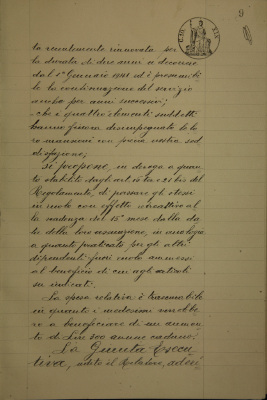 9
ta recentemente rinnovata per
la durata di due anni a decorrere
dal 1° Gennaio 1941 ed è presumibi
le la continuazione del servizio
anche per anni successivi;
che i quattro elementi suddetti
hanno finora disimpegnato le lo
ro mansioni con piena nostra sod
disfazione;
Si propone, in deroga a quan
to stabilito dagli art. 20 bis e 21 bis del
Regolamento, di passare gli stessi
in ruolo con effetto
la cadenza del 15° mese dalla da
ta della loro assunzione, in analogia
a quanto praticato per gli altri
dipendenti fuori ruolo ammessi
al beneficio di cui agli articoli
su indicati.
La spesa relativa è trascurabile
in quanto i medesimi verrebbe
ro a beneficiare di un aumen
to di Lire 300 annue cadauno.
La Giunta Esecu
tiva, udito il Relatore, aderi